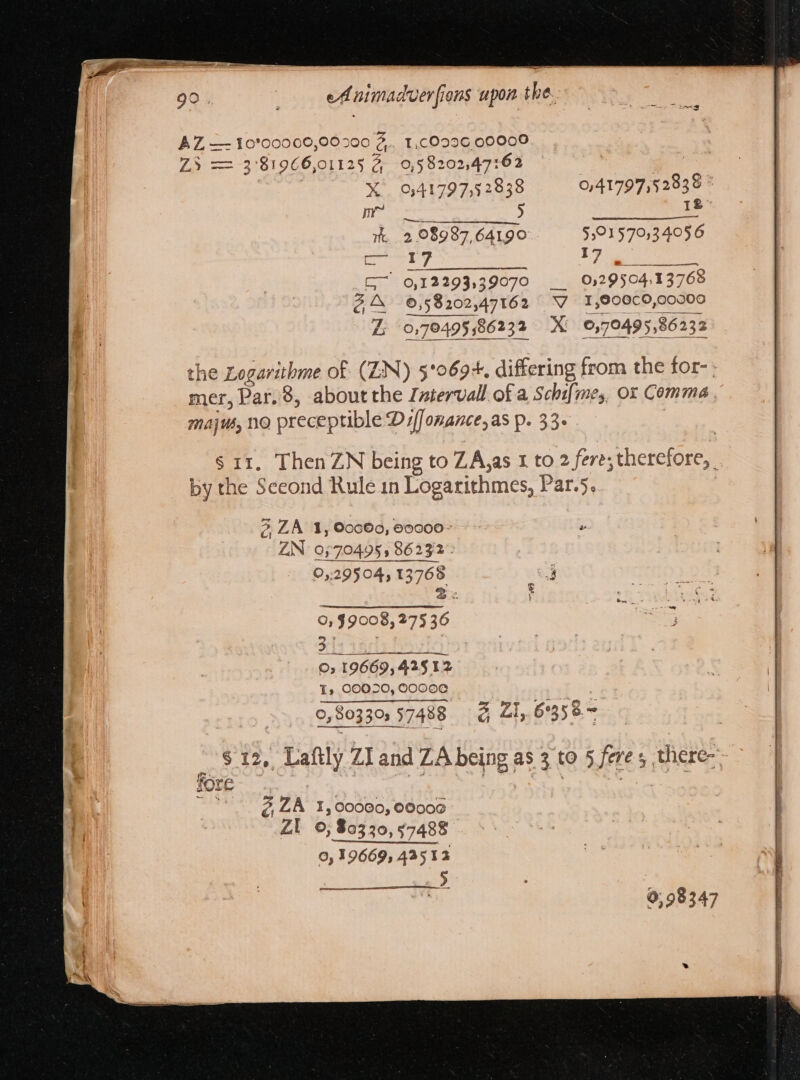 90 Animadversions upon the
AZ == 10'00000,00000 Ȝ. 1,00000,00000
ZS == 3'81966,01125 Ȝ 0,58202,47162
X 0,41797,52838 0,41797,52838
m 5 12
2.08987,64190 5,01570,34056
17 17
0,12293,39070 0,29504,13768
Ȝ 0,58202,47162 1,00000,00000
Z 0,70495,86232 X 0,70495,86232
the Logarithme of (ZN) 5'069+, differing from the for-
mer, Par. 8, about the Intervall of a Schismes, or Comma
majus, no preceptible Dissonance, as p. 33.
§ 11. Then ZN being to ZA, as 1 to 2 fere; therefore,
by the Second Rule in Logarithmes, Par. 5.
Ȝ ZA 1, 00000, 00000
ZN 0, 70495, 86232
0, 29504, 13768
2
0, 59008, 27536
3
0, 19669, 42512
1, 00000, 00000
0, 80330, 57488 Ȝ ZI, 6'358-
§ 12, Lastly ZI and ZA being as 3 to 5 fere; there-
fore
Ȝ ZA 1, 00000, 00000
ZI 0, 80330, 57488
0, 19669, 42512
5
0, 98347